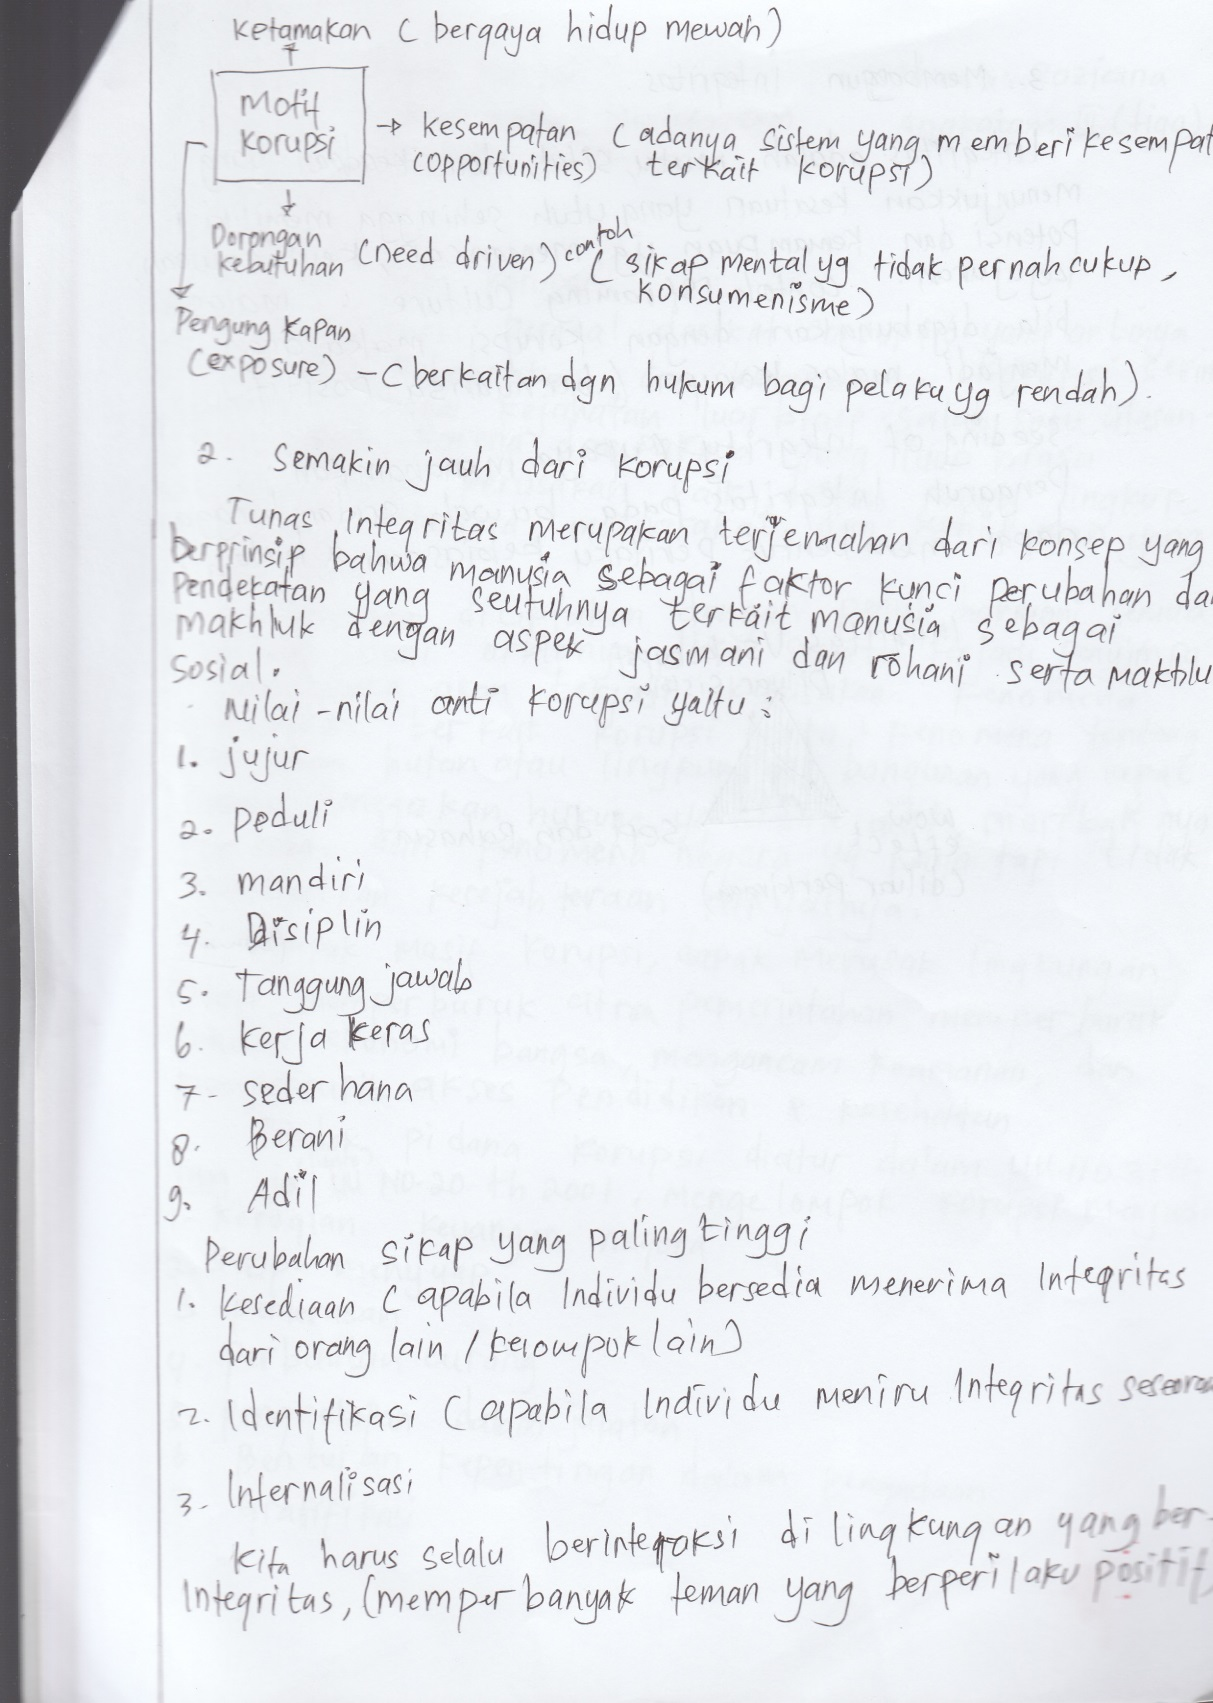 Ketamakan ( bergaya hidup mewah )
Motif
Korupsi
→ kesempatan ( adanya sistem yang memberi kesempat
(opportunities) terkait korupsi )
Dorongan
kebutuhan (need driven) contoh ( sikap mental yg tidak pernah cukup,
konsumenisme )
Pengung kapan
(exposure) - ( berkaitan dgn hukum bagi pelaku yg rendah ).
2. Semakin jauh dari korupsi
Tunas Integritas merupakan terjemahan dari konsep yang
berprinsip bahwa manusia sebagai faktor kunci perubahan da
Pendekatan yang seutuhnya terkait manusia sebagai
makhluk dengan aspek jasmani dan rohani serta makhlu
sosial.
Nilai - nilai anti korupsi yaitu :
1. jujur
2. peduli
3. mandiri
4. Disiplin
5. Tanggung jawab
6. kerja keras
7- sederhana
8. Berani
9. Adil
Perubahan sikap yang paling tinggi
1. kesediaan ( apabila Individu bersedia menerima Integritas
dari orang lain / kelompok lain )
2. Identifikasi ( apabila Individu meniru Integritas seseora
3- Internalisasi
kita harus selalu berinteraksi di lingkungan yang ber-
Integritas, (memper banyak teman yang berperilaku positif)